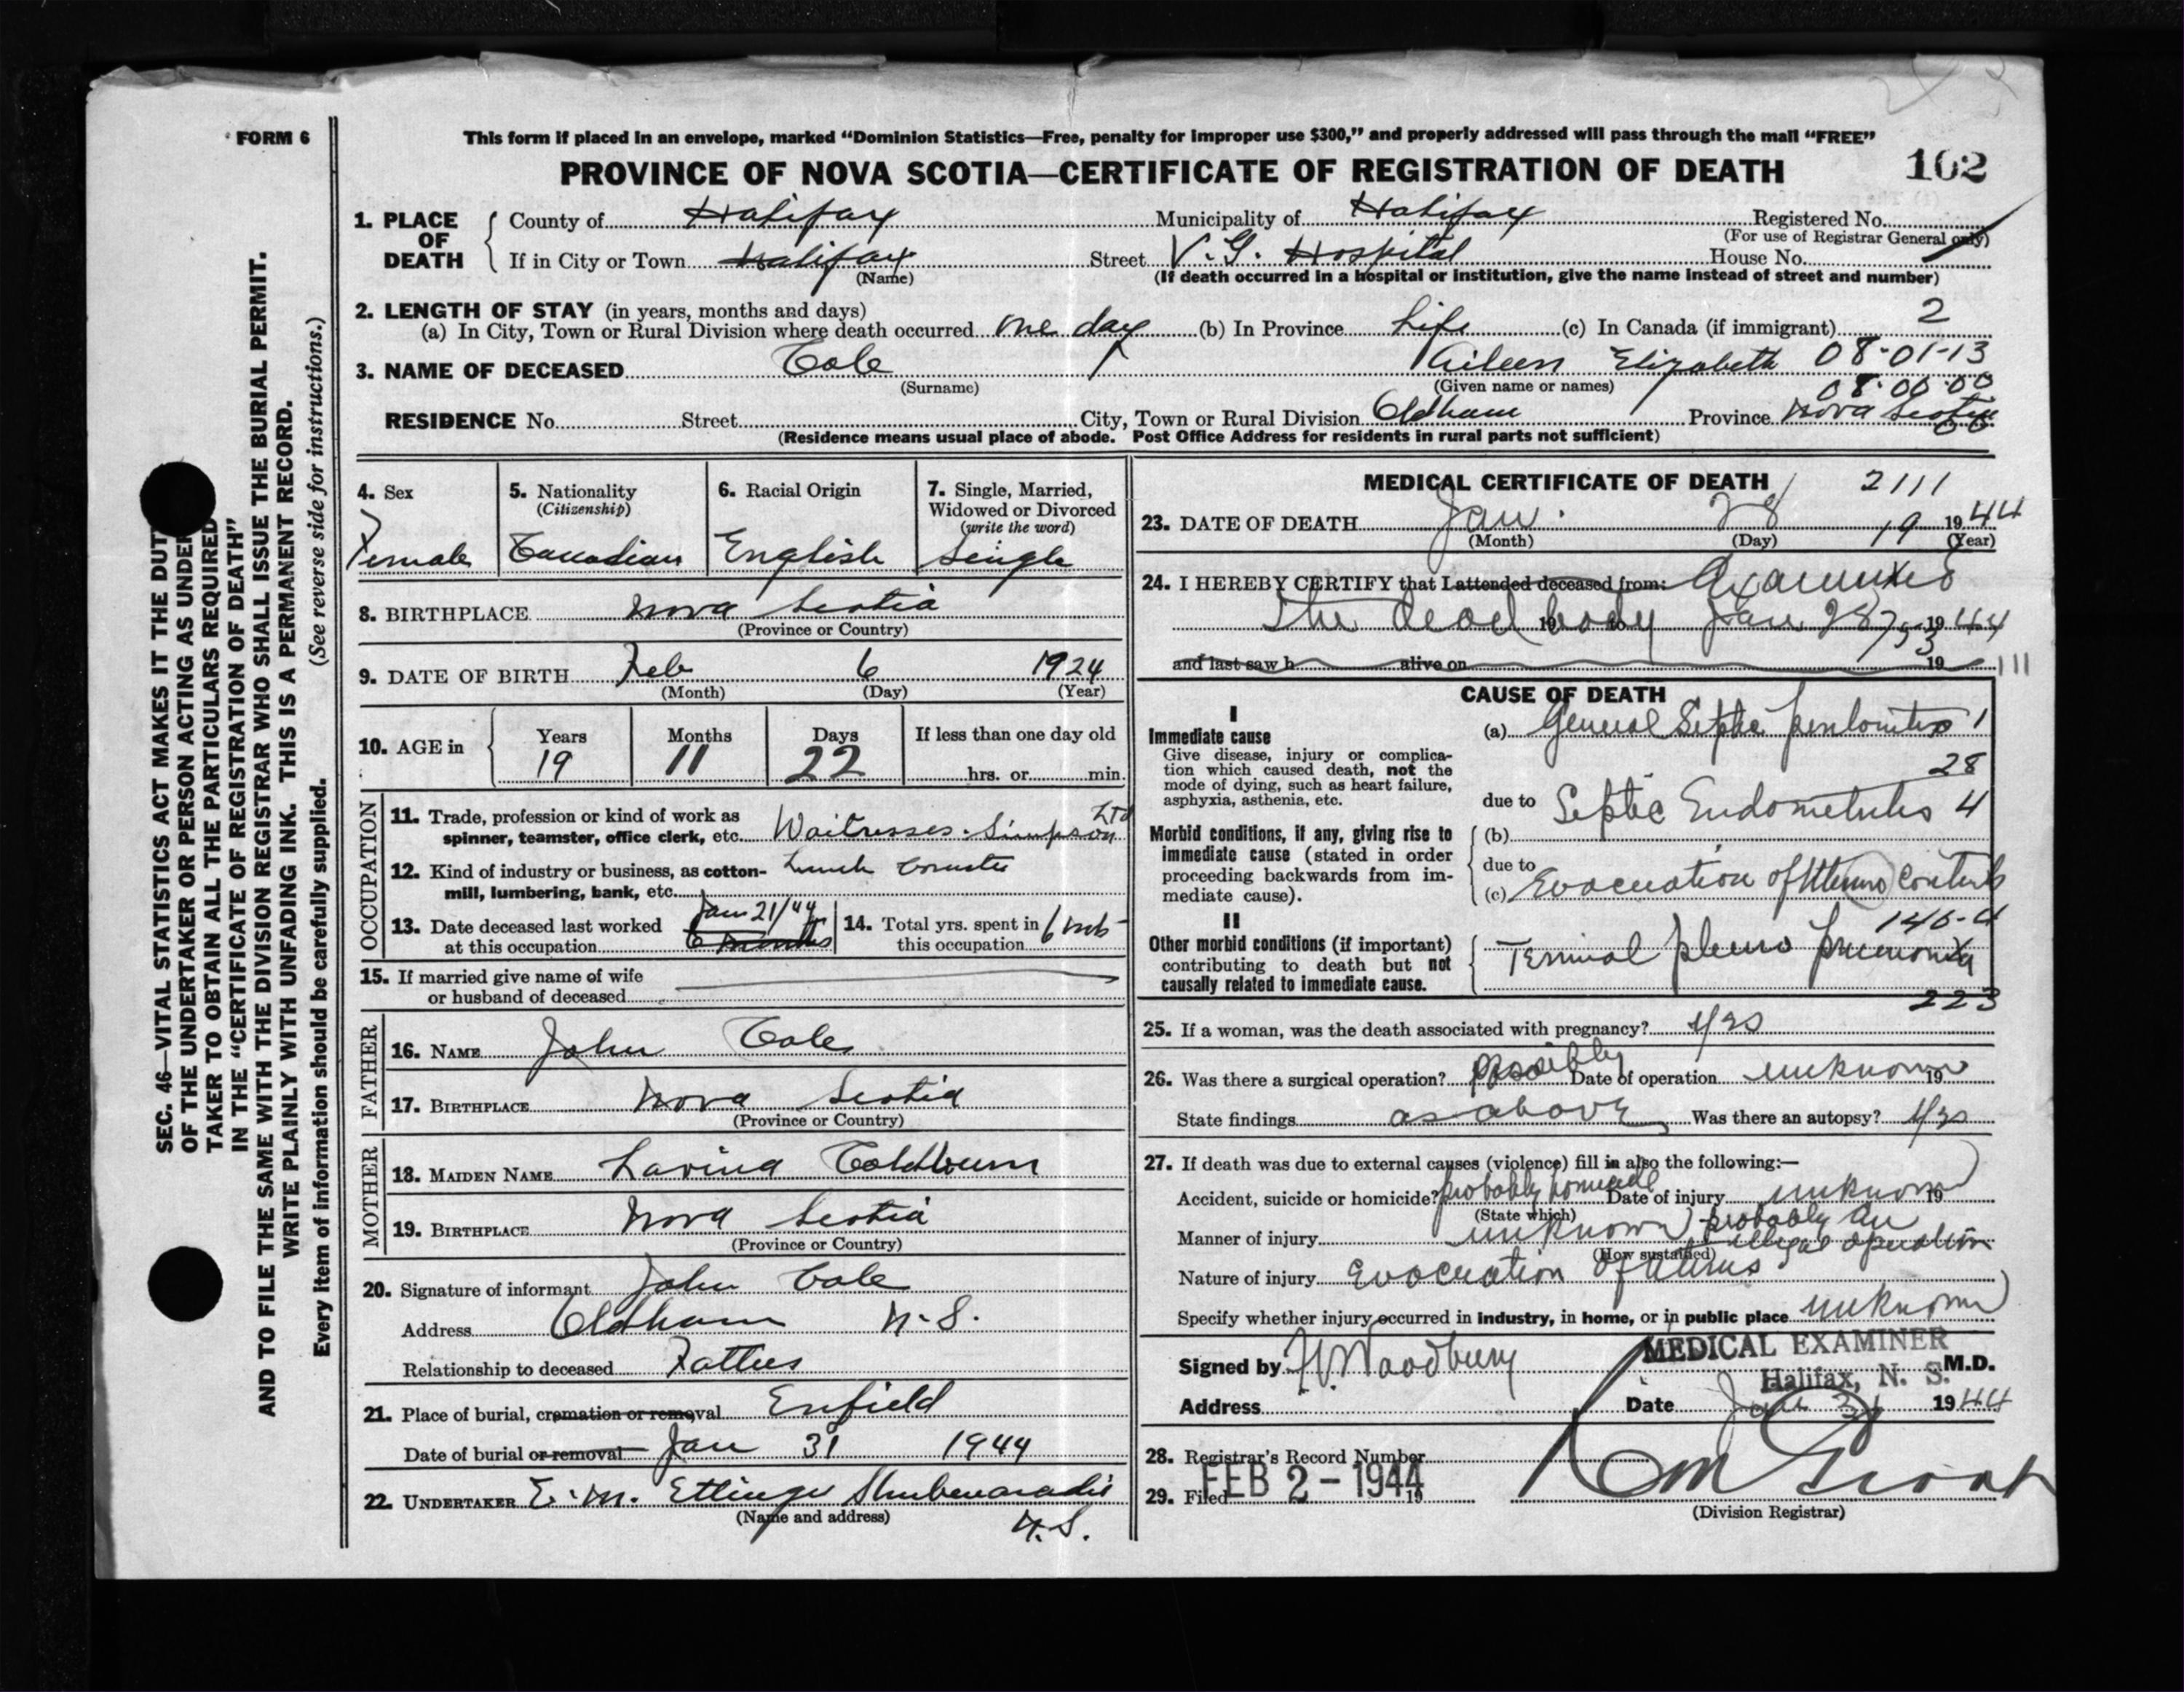 FORM 6
This form if placed in an envelope, marked “Dominion Statistics—Free, penalty for improper use $300,” and properly addressed will pass through the mail “FREE”
PROVINCE OF NOVA SCOTIA—CERTIFICATE OF REGISTRATION OF DEATH
102
1. PLACE OF DEATH
County of Halifax Municipality of Halifax Registered No.
(For use of Registrar General only)
If in City or Town Halifax Street V. G. Hospital House No.
(Name) (If death occurred in a hospital or institution, give the name instead of street and number)
2. LENGTH OF STAY (in years, months and days)
(a) In City, Town or Rural Division where death occurred one day (b) In Province Life (c) In Canada (if immigrant) 2
3. NAME OF DECEASED Cole Aileen Elizabeth 08-01-13
(Surname) (Given name or names) 08-00-00
RESIDENCE No. Street City, Town or Rural Division Oldham Province Nova Scotia
(Residence means usual place of abode. Post Office Address for residents in rural parts not sufficient)
4. Sex
Female
5. Nationality
(Citizenship)
Canadian
6. Racial Origin
English
7. Single, Married,
Widowed or Divorced
(write the word)
Single
8. BIRTHPLACE Nova Scotia
(Province or Country)
9. DATE OF BIRTH Feb 6 1924
(Month) (Day) (Year)
10. AGE in
Years Months Days If less than one day old
19 11 22 hrs. or min.
OCCUPATION
11. Trade, profession or kind of work as
spinner, teamster, office clerk, etc. Waitresses. Simpson Ltd
12. Kind of industry or business, as cotton- Lunch
mill, lumbering, bank, etc.
13. Date deceased last worked Jan 21/44
at this occupation 6 months
14. Total yrs. spent in
this occupation 6 mts
15. If married give name of wife
or husband of deceased
FATHER
16. NAME John Cole
17. BIRTHPLACE Nova Scotia
(Province or Country)
MOTHER
18. MAIDEN NAME Lavina
19. BIRTHPLACE Nova Scotia
(Province or Country)
20. Signature of informant John Cole
Address Oldham N.S.
Relationship to deceased Father
21. Place of burial, cremation or removal Enfield
Date of burial or removal Jan 31 1944
22. UNDERTAKER E. M. Ettinger Shubenacadie
(Name and address) N.S.
MEDICAL CERTIFICATE OF DEATH 2111
23. DATE OF DEATH Jan. 28 19 1944
(Month) (Day) (Year)
24. I HEREBY CERTIFY that I attended deceased from: Examined
the dead body Jan 28 1944
and last saw h alive on 19 111
CAUSE OF DEATH
I
Immediate cause
Give disease, injury or complica-
tion which caused death, not the
mode of dying, such as heart failure,
asphyxia, asthenia, etc.
(a) General Septic peritonitis 1
28
due to Septic Endometritis 4
Morbid conditions, if any, giving rise to
immediate cause (stated in order
proceeding backwards from im-
mediate cause).
(b)
due to
(c) Evacuation of Uterine contents
II
Other morbid conditions (if important)
contributing to death but not
causally related to immediate cause.
Terminal pleuro pneumonia
223
25. If a woman, was the death associated with pregnancy? Yes
26. Was there a surgical operation? Possibly Date of operation unknown 19
State findings as above Was there an autopsy? Yes
27. If death was due to external causes (violence) fill in also the following:—
Accident, suicide or homicide? probably homicide Date of injury unknown 19
(State which)
Manner of injury unknown probably an illegal operation
(How sustained)
Nature of injury Evacuation of Uterus
Specify whether injury occurred in industry, in home, or in public place unknown
Signed by Woodbury MEDICAL EXAMINER M.D.
Halifax, N. S.
Address Date Jan 31 1944
28. Registrar's Record Number
29. Filed FEB 2 - 1944 19
(Division Registrar)
SEC. 46—VITAL STATISTICS ACT MAKES IT THE DUT
OF THE UNDERTAKER OR PERSON ACTING AS UNDER
TAKER TO OBTAIN ALL THE PARTICULARS REQUIRED
IN THE “CERTIFICATE OF REGISTRATION OF DEATH”
AND TO FILE THE SAME WITH THE DIVISION REGISTRAR WHO SHALL ISSUE THE BURIAL PERMIT.
WRITE PLAINLY WITH UNFADING INK. THIS IS A PERMANENT RECORD.
Every item of information should be carefully supplied. (See reverse side for instructions.)